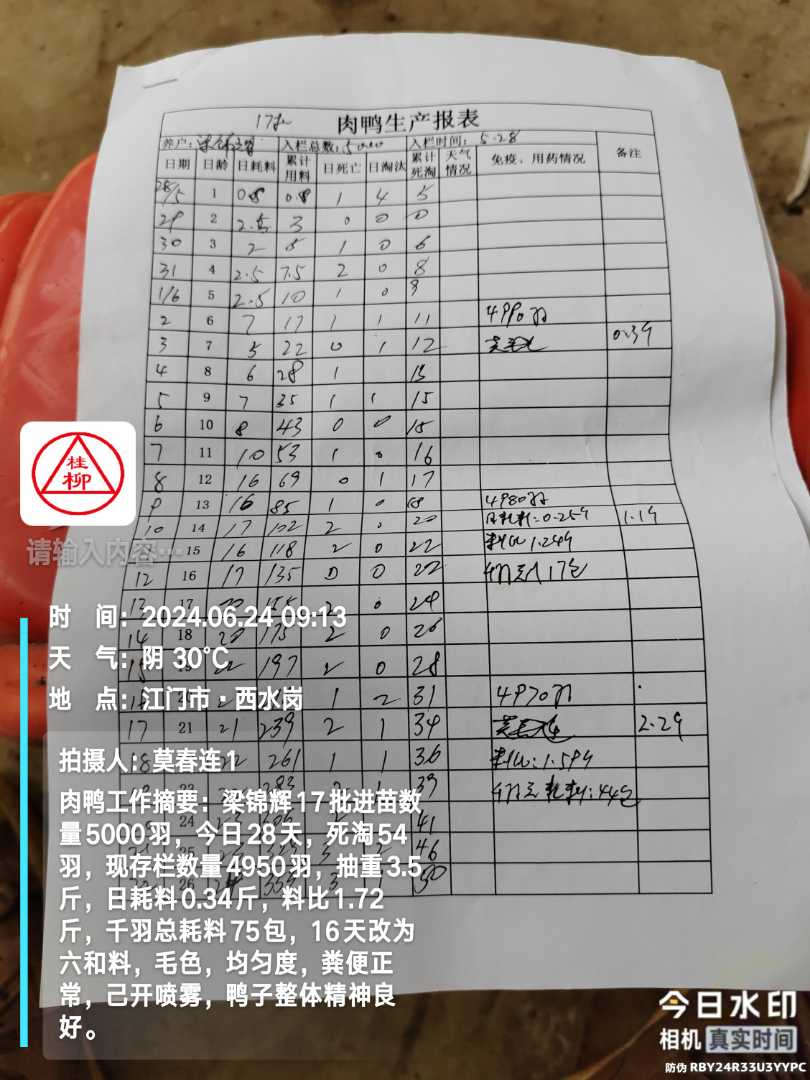 17批 肉鸭生产报表
养户: 入栏总数:5000 入栏时间:5.28
日期 日龄 日耗料 累计用料 日死亡 日淘汰 累计死淘 天气情况 免疫、用药情况 备注
28/5 1 0.8 0.8 1 4 5
29 2 2.5 3 0 0 0
30 3 2 5 1 0 6
31 4 2.5 7.5 2 0 8
1/6 5 2.5 10 1 0 9
2 6 7 17 1 1 11 4990羽
3 7 5 22 0 1 12 0.39
4 8 6 28 1 13
5 9 7 35 1 1 15
6 10 8 43 0 0 15
7 11 10 53 1 0 16
8 12 16 69 0 1 17
9 13 16 85 1 0 18 4980羽
10 14 17 102 2 0 20 日耗料:0.259 1.19
15 16 118 2 0 22 料比1.249
12 16 17 135 0 0 22 17包
13 17 2 0 24
14 18 20 175 2 0 26
197 2 0 28
1 2 31 4970羽
17 21 21 239 2 1 34 2.29
18 22 261 1 1 36 料比:1.599
39 耗料:44包
24 41
46
26 3 1 50
桂柳
请输入内容…
时 间:2024.06.24 09:13
天 气:阴 30℃
地 点:江门市·西水岗
拍摄人:莫春连1
肉鸭工作摘要:梁锦辉17批进苗数
量5000羽,今日28天,死淘54
羽,现存栏数量4950羽,抽重3.5
斤,日耗料0.34斤,料比1.72
斤,千羽总耗料75包,16天改为
六和料,毛色,均匀度,粪便正
常,己开喷雾,鸭子整体精神良
好。
今日水印
相机 真实时间
防伪 RBY24R33U3YYPC